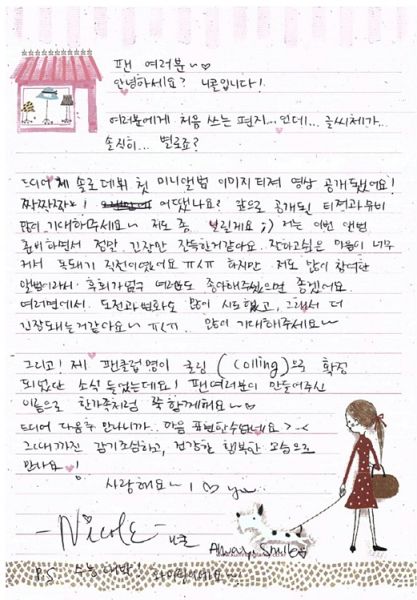 팬 여러분~♡
안녕하세요? 니콜입니다!
여러분에게 처음 쓰는 편지...인데... 글씨체가..
솔직히... 별로죠?
드디어 제 솔로데뷔 첫 미니앨범 이미지티져 영상 공개됐어요!
짝짝짝*! 어땠나요? 앞으로 공개될 티져과뮤비
많이 기대해주세요~ 저도 좀 떨리게요 ;) 저는 이번 앨범
준비하면서 정말 긴장만 잔뜩한거같아요. 잘하고싶은 마음이 너무
커서 폭되기 직전이였어요 ㅠㅅㅠ 하지만 저도 많이 참여한
앨범이라서.. 여러분도 좋아해주셨으면 좋겠어요.
여러면에서.. 도전과변화도 많이 시도했고, 그래서 더
긴장돼는거같아요~ ㅠㅅㅠ. 많이 기대해주세요~
그리고! 제 팬클럽명이 콜링 (Colling)으로 확정
되었단 소식 들었는데요! 팬여러분이 만들어주신
이름으로 한가족처럼 쭉 함께해요~♡
드디어 다음주 만나니까.. 마음 표현한수있네요 >.<
그때까진 감기조심하고, 건강할 행복한 모습으로
만나요♥!
사랑해요~ I ♡ you..
-Nicole- 니콜
Always, Smile
P.S 수능 대박! 화이팅이에요~